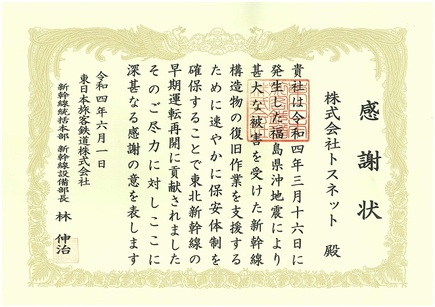 感謝状
株式会社トスネット 殿
貴社は令和四年三月十六日に
発生した福島県沖地震により
甚大な被害を受けた新幹線
構造物の復旧作業を支援する
ために速やかに保安体制を
確保することで東北新幹線の
早期運転再開に貢献されました
そのご尽力に対しここに
深甚なる感謝の意を表します
令和四年六月一日
東日本旅客鉄道株式会社
新幹線統括本部 新幹線設備部長 林 伸治